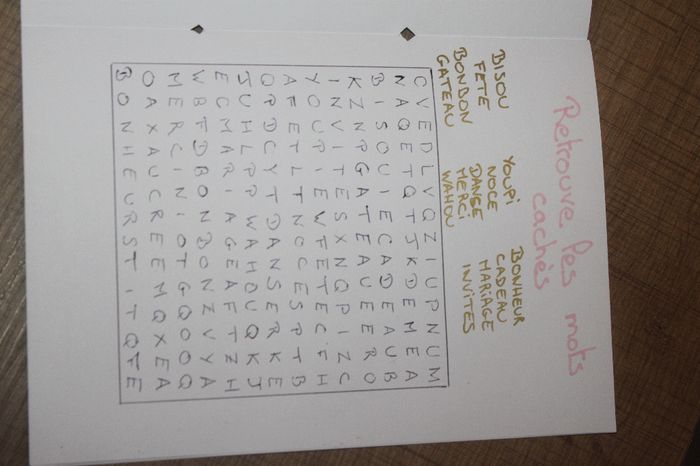 Retrouve les mots
cachés
BISOU YOUPI BONHEUR
FETE NOCE CADEAU
BONBON DANSE MARIAGE
GATEAU MERCI INVITES
WAHOU
C V E D L V Q Z I U P N U M
N A Q E T Q T J K D E M E A
B I S O U I E C A D E A U B
K Z N P G A T E A U E E R O
I N V I T E S X N Q P I Z C
Y O U P I E W F E T E C F H
A F E T L T N O C E S P T B
O P D C Y T D A N S E R K E
J U H L P P W A H O U Q K J
E C M A R I A G E A F T Z H
W B F D B O N B O N Z V Y A
M E R C I N I O T G Q O O Q
O A X A U C R E E M Q X E A
B O N H E U R S T I T Q F E